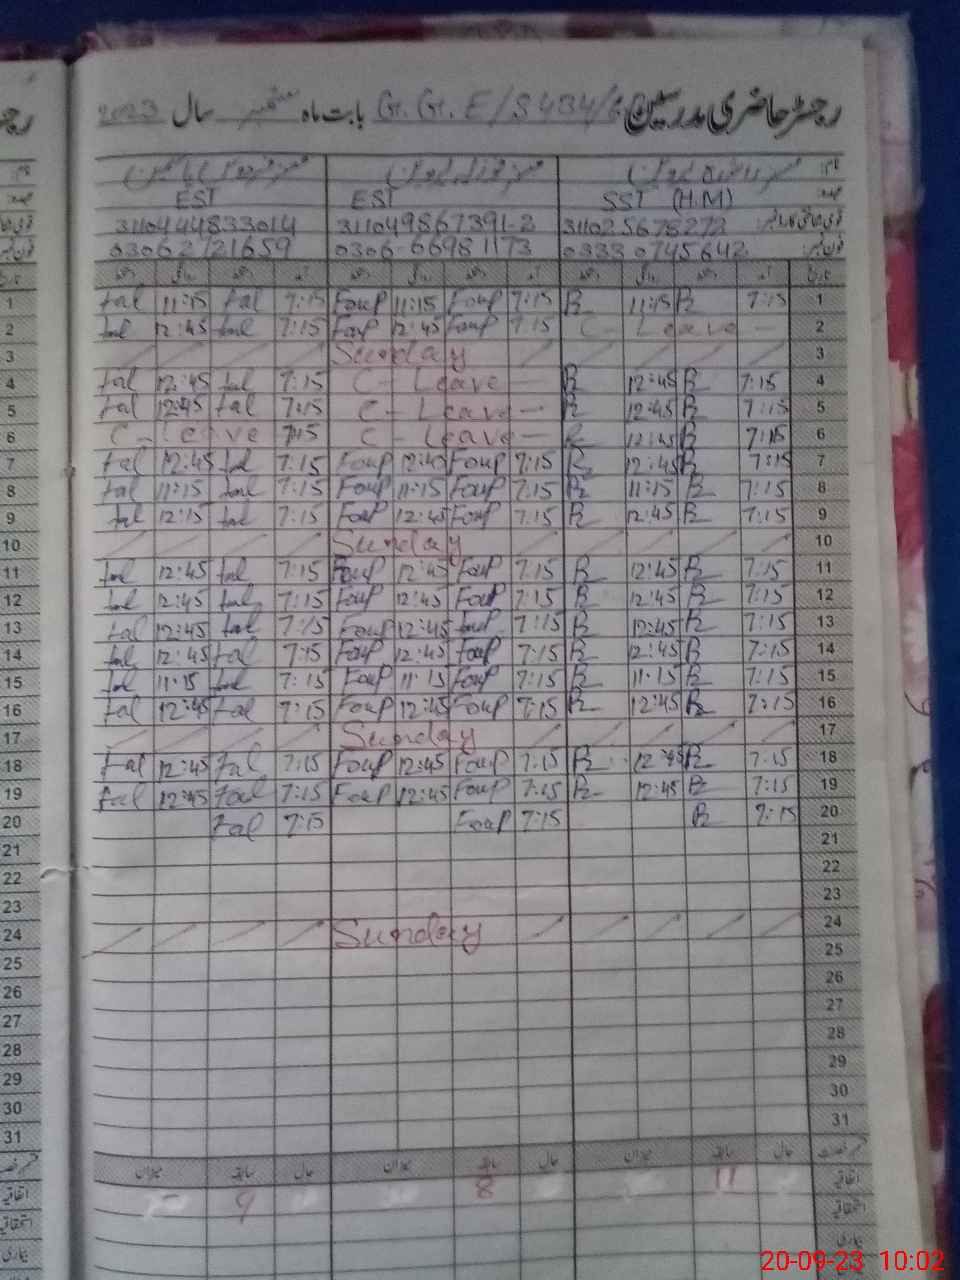 رجسٹر حاضری مدرسین G. G. E/S 434/6 بابت ماہ ستمبر سال 2023
EST EST SST (H.M)
3110444833014 311049867391-2 311025678272
03062721659 0306-66981173 0333 0745642
fal 11:15 fal 7:15 Fouf 11:15 Fouf 7:15 R 11:15 R 7:15 1
fal 12:45 fal 7:15 Fouf 12:45 Fouf 7:15 C - Leave - 2
Sunday 3
fal 12:45 fal 7:15 C - Leave - R 12:45 R 7:15 4
fal 12:45 fal 7:15 C - Leave - R 12:45 R 7:15 5
C - Leave 7:15 C - Leave - R 12:45 R 7:15 6
fal 12:45 fal 7:15 Fouf 12:40 Fouf 7:15 R 12:45 R 7:15 7
fal 11:15 fal 7:15 Fouf 11:15 Fouf 7:15 R 11:15 R 7:15 8
fal 12:15 fal 7:15 Fouf 12:45 Fouf 7:15 R 12:45 R 7:15 9
Sunday 10
fal 12:45 fal 7:15 Fouf 12:45 Fouf 7:15 R 12:45 R 7:15 11
fal 12:45 fal 7:15 Fouf 12:45 Fouf 7:15 R 12:45 R 7:15 12
fal 12:45 fal 7:15 Fouf 12:45 Fouf 7:15 R 12:45 R 7:15 13
fal 12:45 fal 7:15 Fouf 12:45 Fouf 7:15 R 12:45 R 7:15 14
fal 11:15 fal 7:15 Fouf 11:15 Fouf 7:15 R 11:15 R 7:15 15
fal 12:45 fal 7:15 Fouf 12:45 Fouf 7:15 R 12:45 R 7:15 16
Sunday 17
fal 12:45 fal 7:15 Fouf 12:45 Fouf 7:15 R 12:45 R 7:15 18
fal 12:45 fal 7:15 Fouf 12:45 Fouf 7:15 R 12:45 R 7:15 19
fal 7:15 Fouf 7:15 R 7:15 20
21
22
23
24 Sunday 24
25 25
26 26
27 27
28 28
29 29
30 30
31 31
میزان سابقہ حال میزان سابقہ حال میزان سابقہ حال
اتفاقیہ 9 8 11 اتفاقیہ
استحقاقیہ استحقاقیہ
بیماری بیماری
20-09-23 10:02